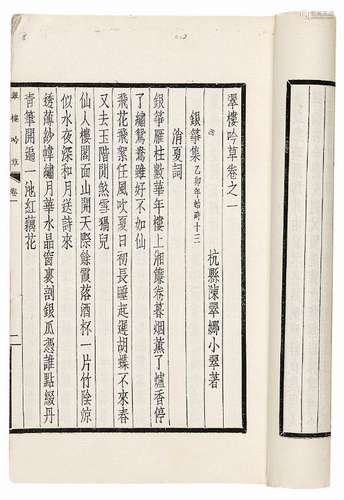 翠樓吟草卷之一
杭縣陳翠娜小翠著
銀箏集 乙卯年始時十三
消夏詞
銀箏雁柱數華年樓上湘簾卷暮烟薰了爐香停
了繡鴛鴦雖好不如仙
飛花飛絮任風吹夏日初長睡起遲胡蝶不來春
又去玉階閒煞雪猧兒
仙人樓閣面山開天際餘霞落酒杯一片竹陰涼
似水夜深和月送詩來
透薄紗幃繡月華水晶窗裏剖銀瓜憑誰點綴丹
青筆開遍一池紅藕花
翠樓吟草
卷一
二